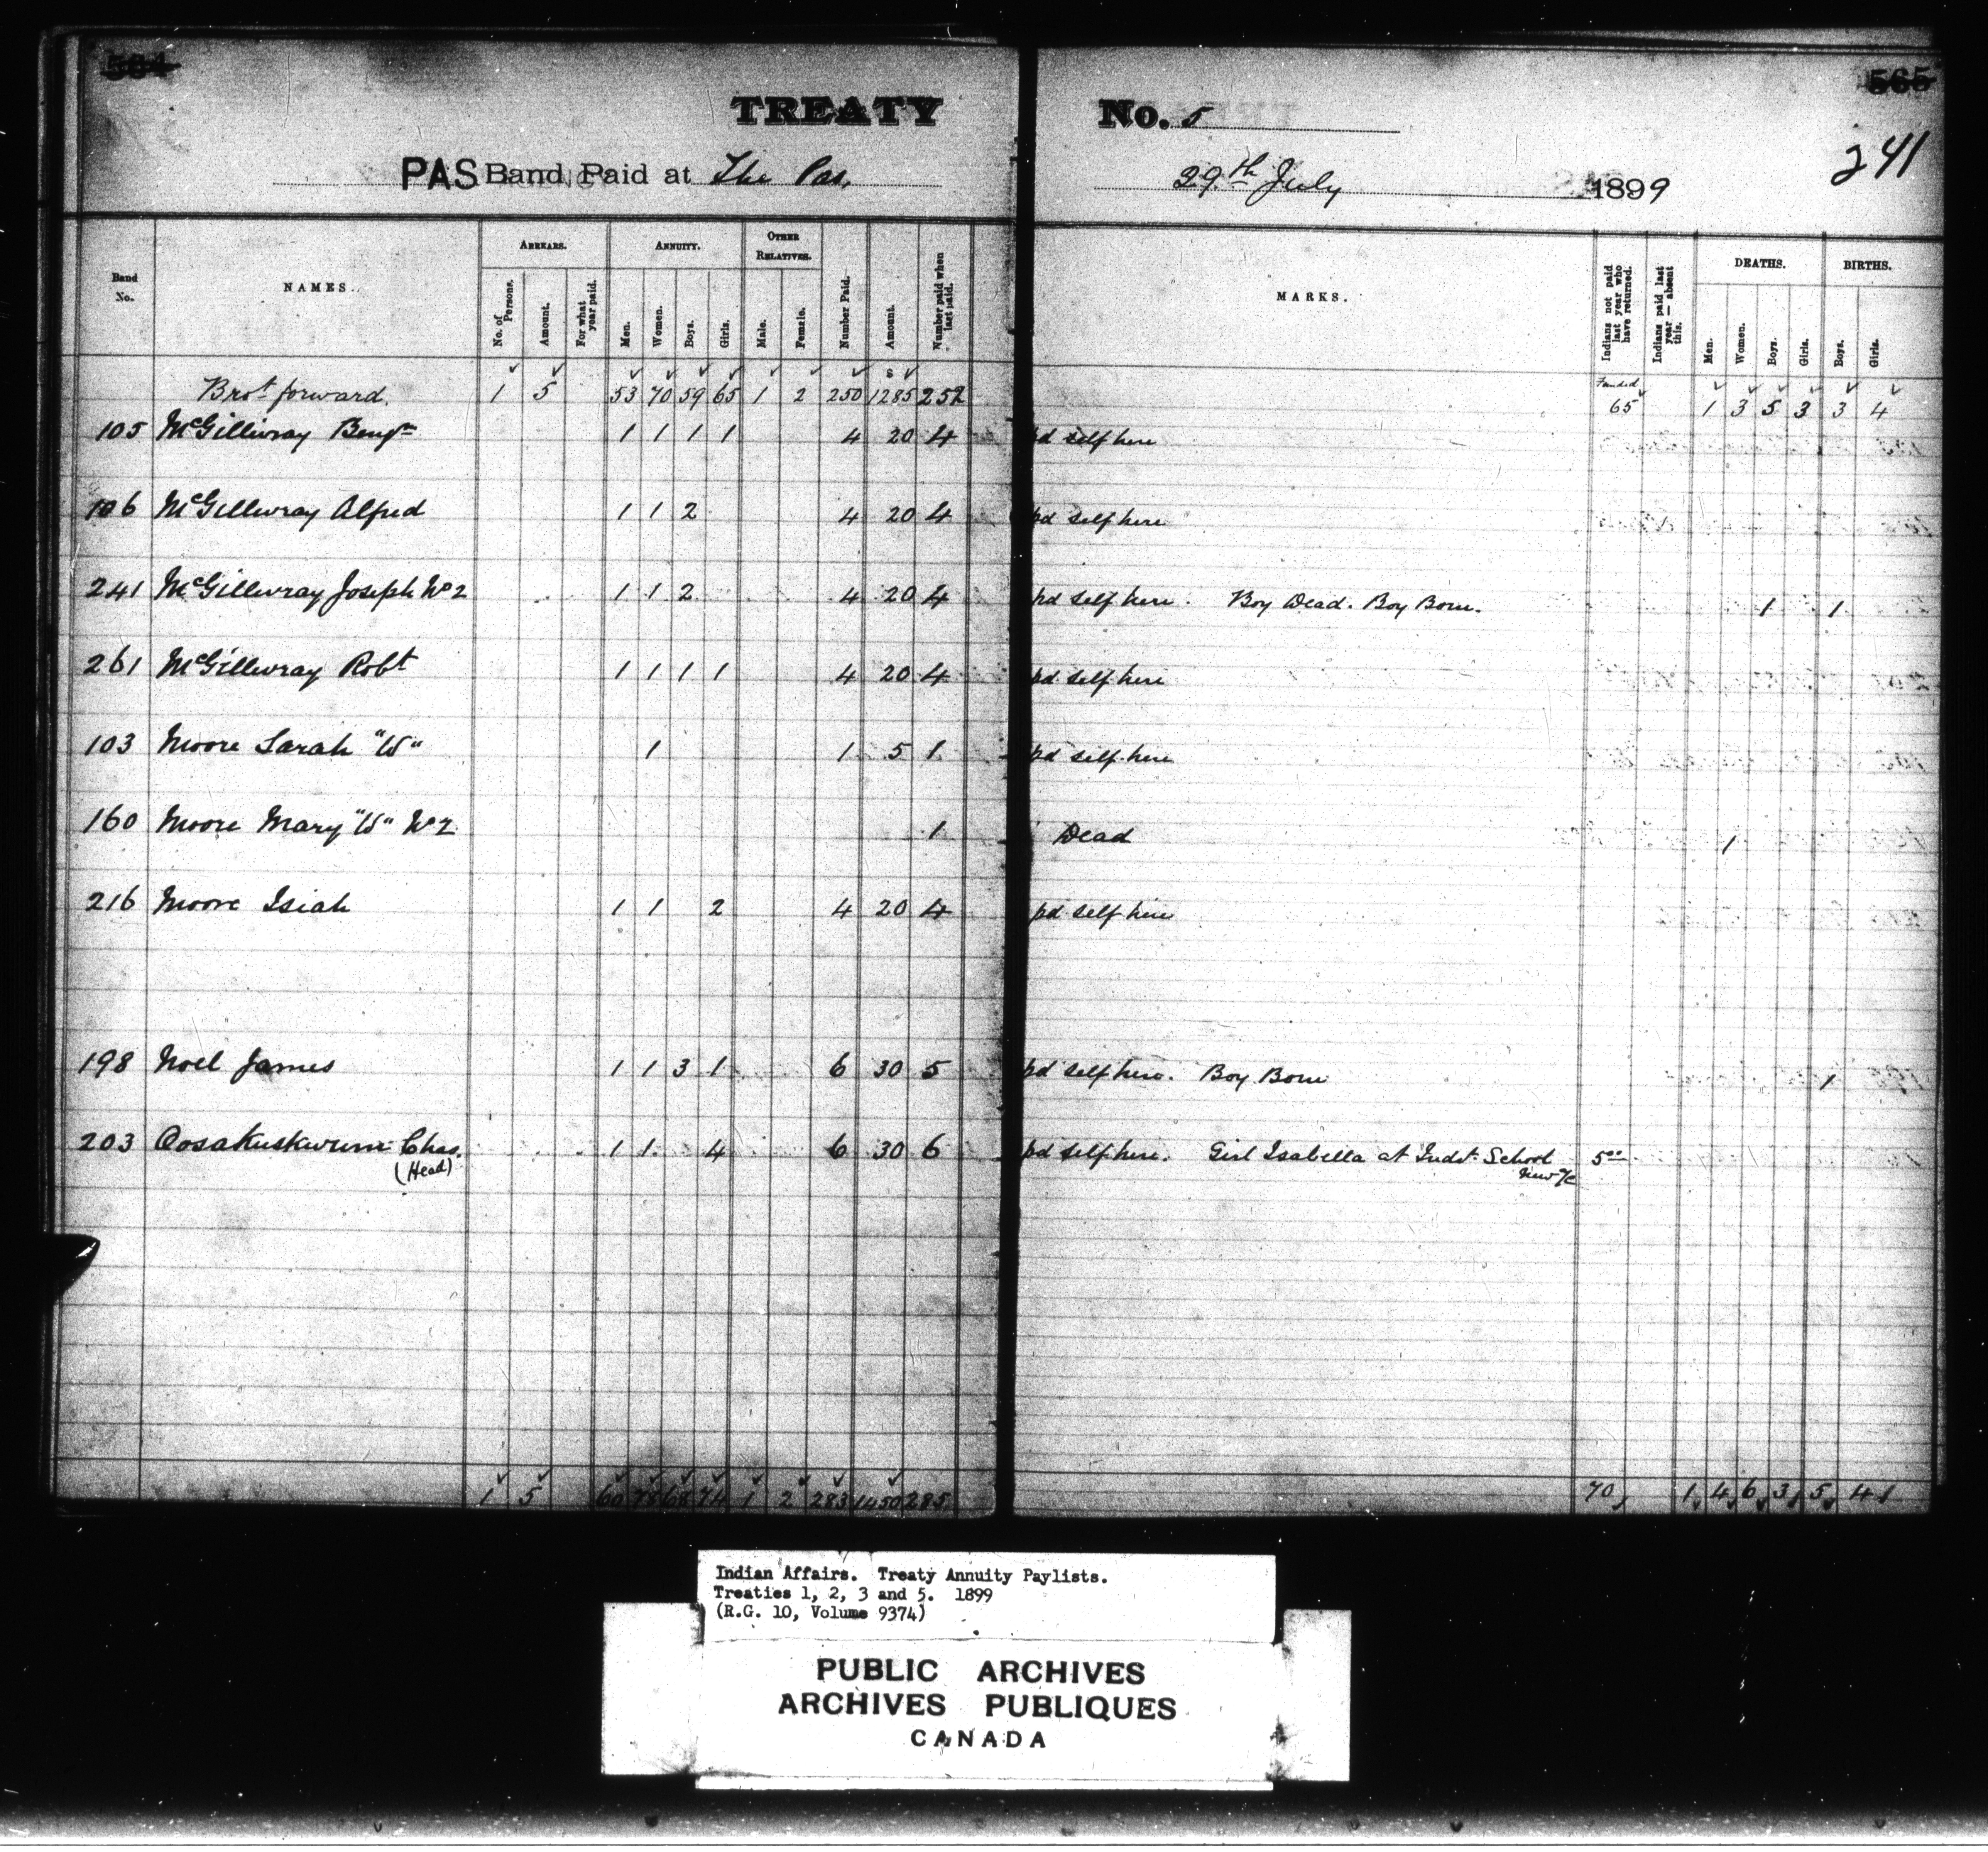 564 565
TREATY No. 5
241
PAS Band Paid at The Pas, 29th July 1899
Band No. NAMES. ARREARS. No. of Persons. Amount. For what year paid. ANNUITY. Men. Women. Boys. Girls. OTHER RELATIVES. Male. Female. Number Paid. Amount. Number paid when last paid. MARKS. Indians not paid last year who have returned. Indians paid last year — absent this. DEATHS. Men. Women. Boys. Girls. BIRTHS. Boys. Girls.
Brot forward. 1 5 53 70 59 65 1 2 250 $1285 252 Funded 65 1 3 5 3 3 4
105 McGillivray Benjn 1 1 1 1 4 20 4 pd self here
106 McGillivray Alfred 1 1 2 4 20 4 pd self here
241 McGillivray Joseph No 2 1 1 2 4 20 4 pd self here. Boy Dead. Boy Born. 1 1
261 McGillivray Robt 1 1 1 1 4 20 4 pd self here
103 Moore Sarah "W" 1 1 5 1 pd self here
160 Moore Mary "W" No 2 1 Dead 1
216 Moore Isiah 1 1 2 4 20 4 pd self here
198 Noel James 1 1 3 1 6 30 5 pd self here. Boy Born 1
203 Oosakuskwum Chas. (Head) 1 1 4 6 30 6 pd self here. Girl Isabella at Indst. School 5.00
1 5 60 78 68 74 1 2 283 1450 285 70 1 4 6 3 5 4
Indian Affairs. Treaty Annuity Paylists.
Treaties 1, 2, 3 and 5. 1899
(R.G. 10, Volume 9374)
PUBLIC ARCHIVES
ARCHIVES PUBLIQUES
CANADA